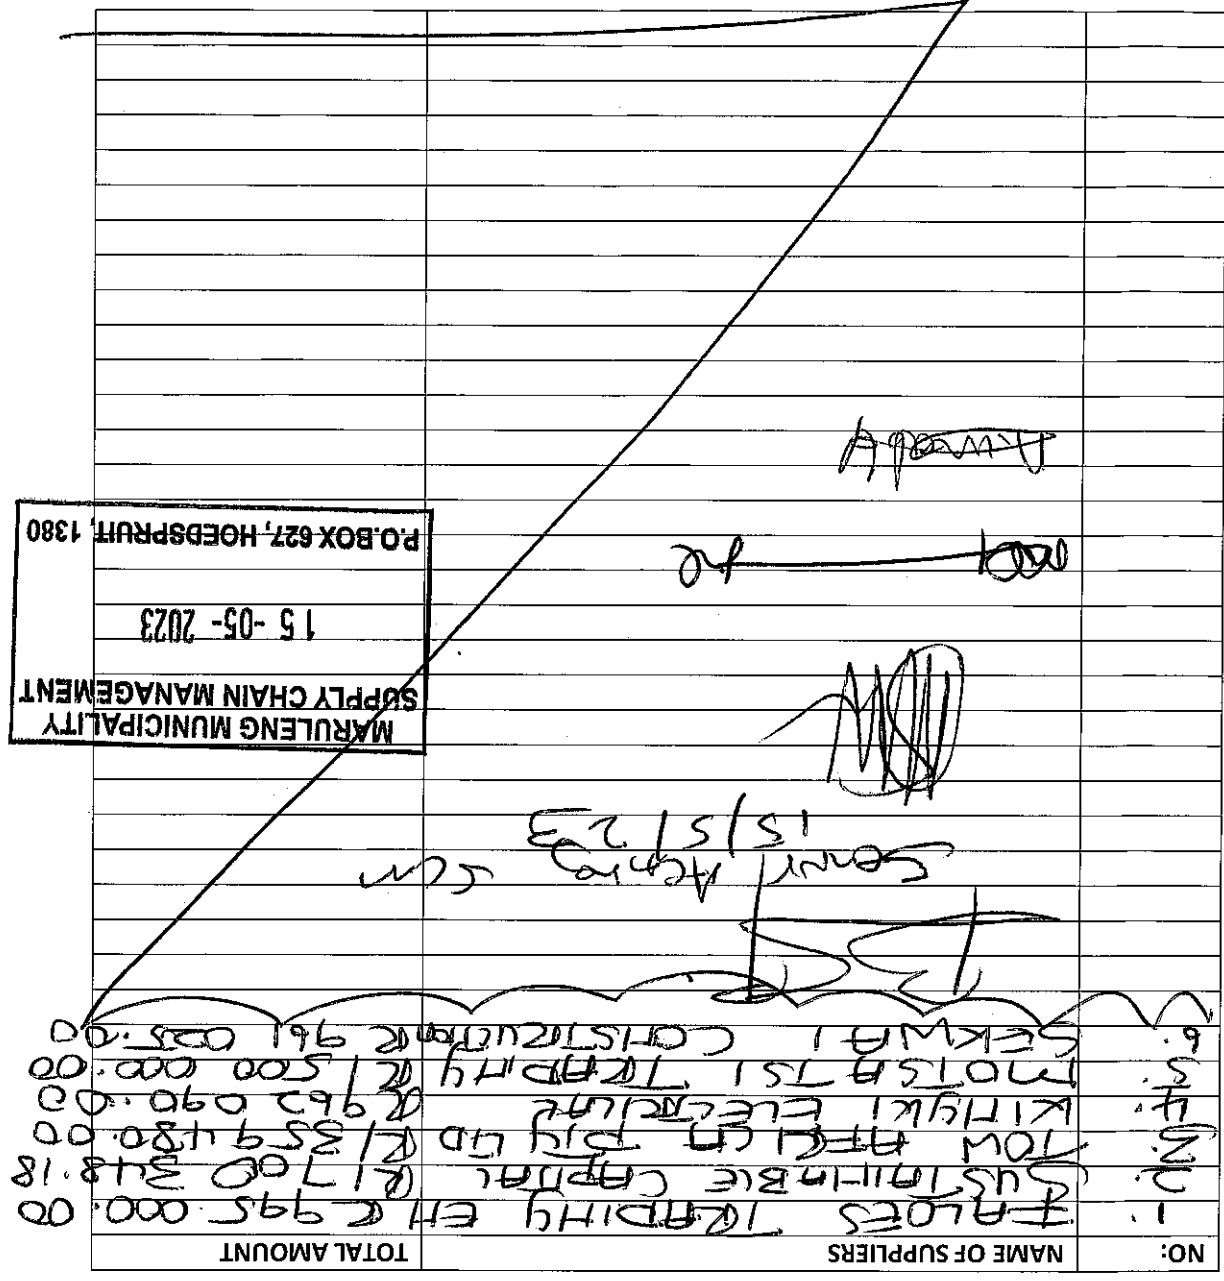 NO: NAME OF SUPPLIERS TOTAL AMOUNT
1. TRADING R 995 000.00
2. SUSTAINABLE CAPITAL R1 700 348.18
3. TOW AFRICA PTY LTD R1 359 480.00
4. KINGKI ELECTRICAL R 962 090.00
5. MOTSATSI TRADING R1 500 000.00
6. SEKWAI CONSTRUCTION R 961 025.00
SCM
15/5/23
MARULENG MUNICIPALITY
SUPPLY CHAIN MANAGEMENT
15 -05- 2023
P.O.BOX 627, HOEDSPRUIT, 1380